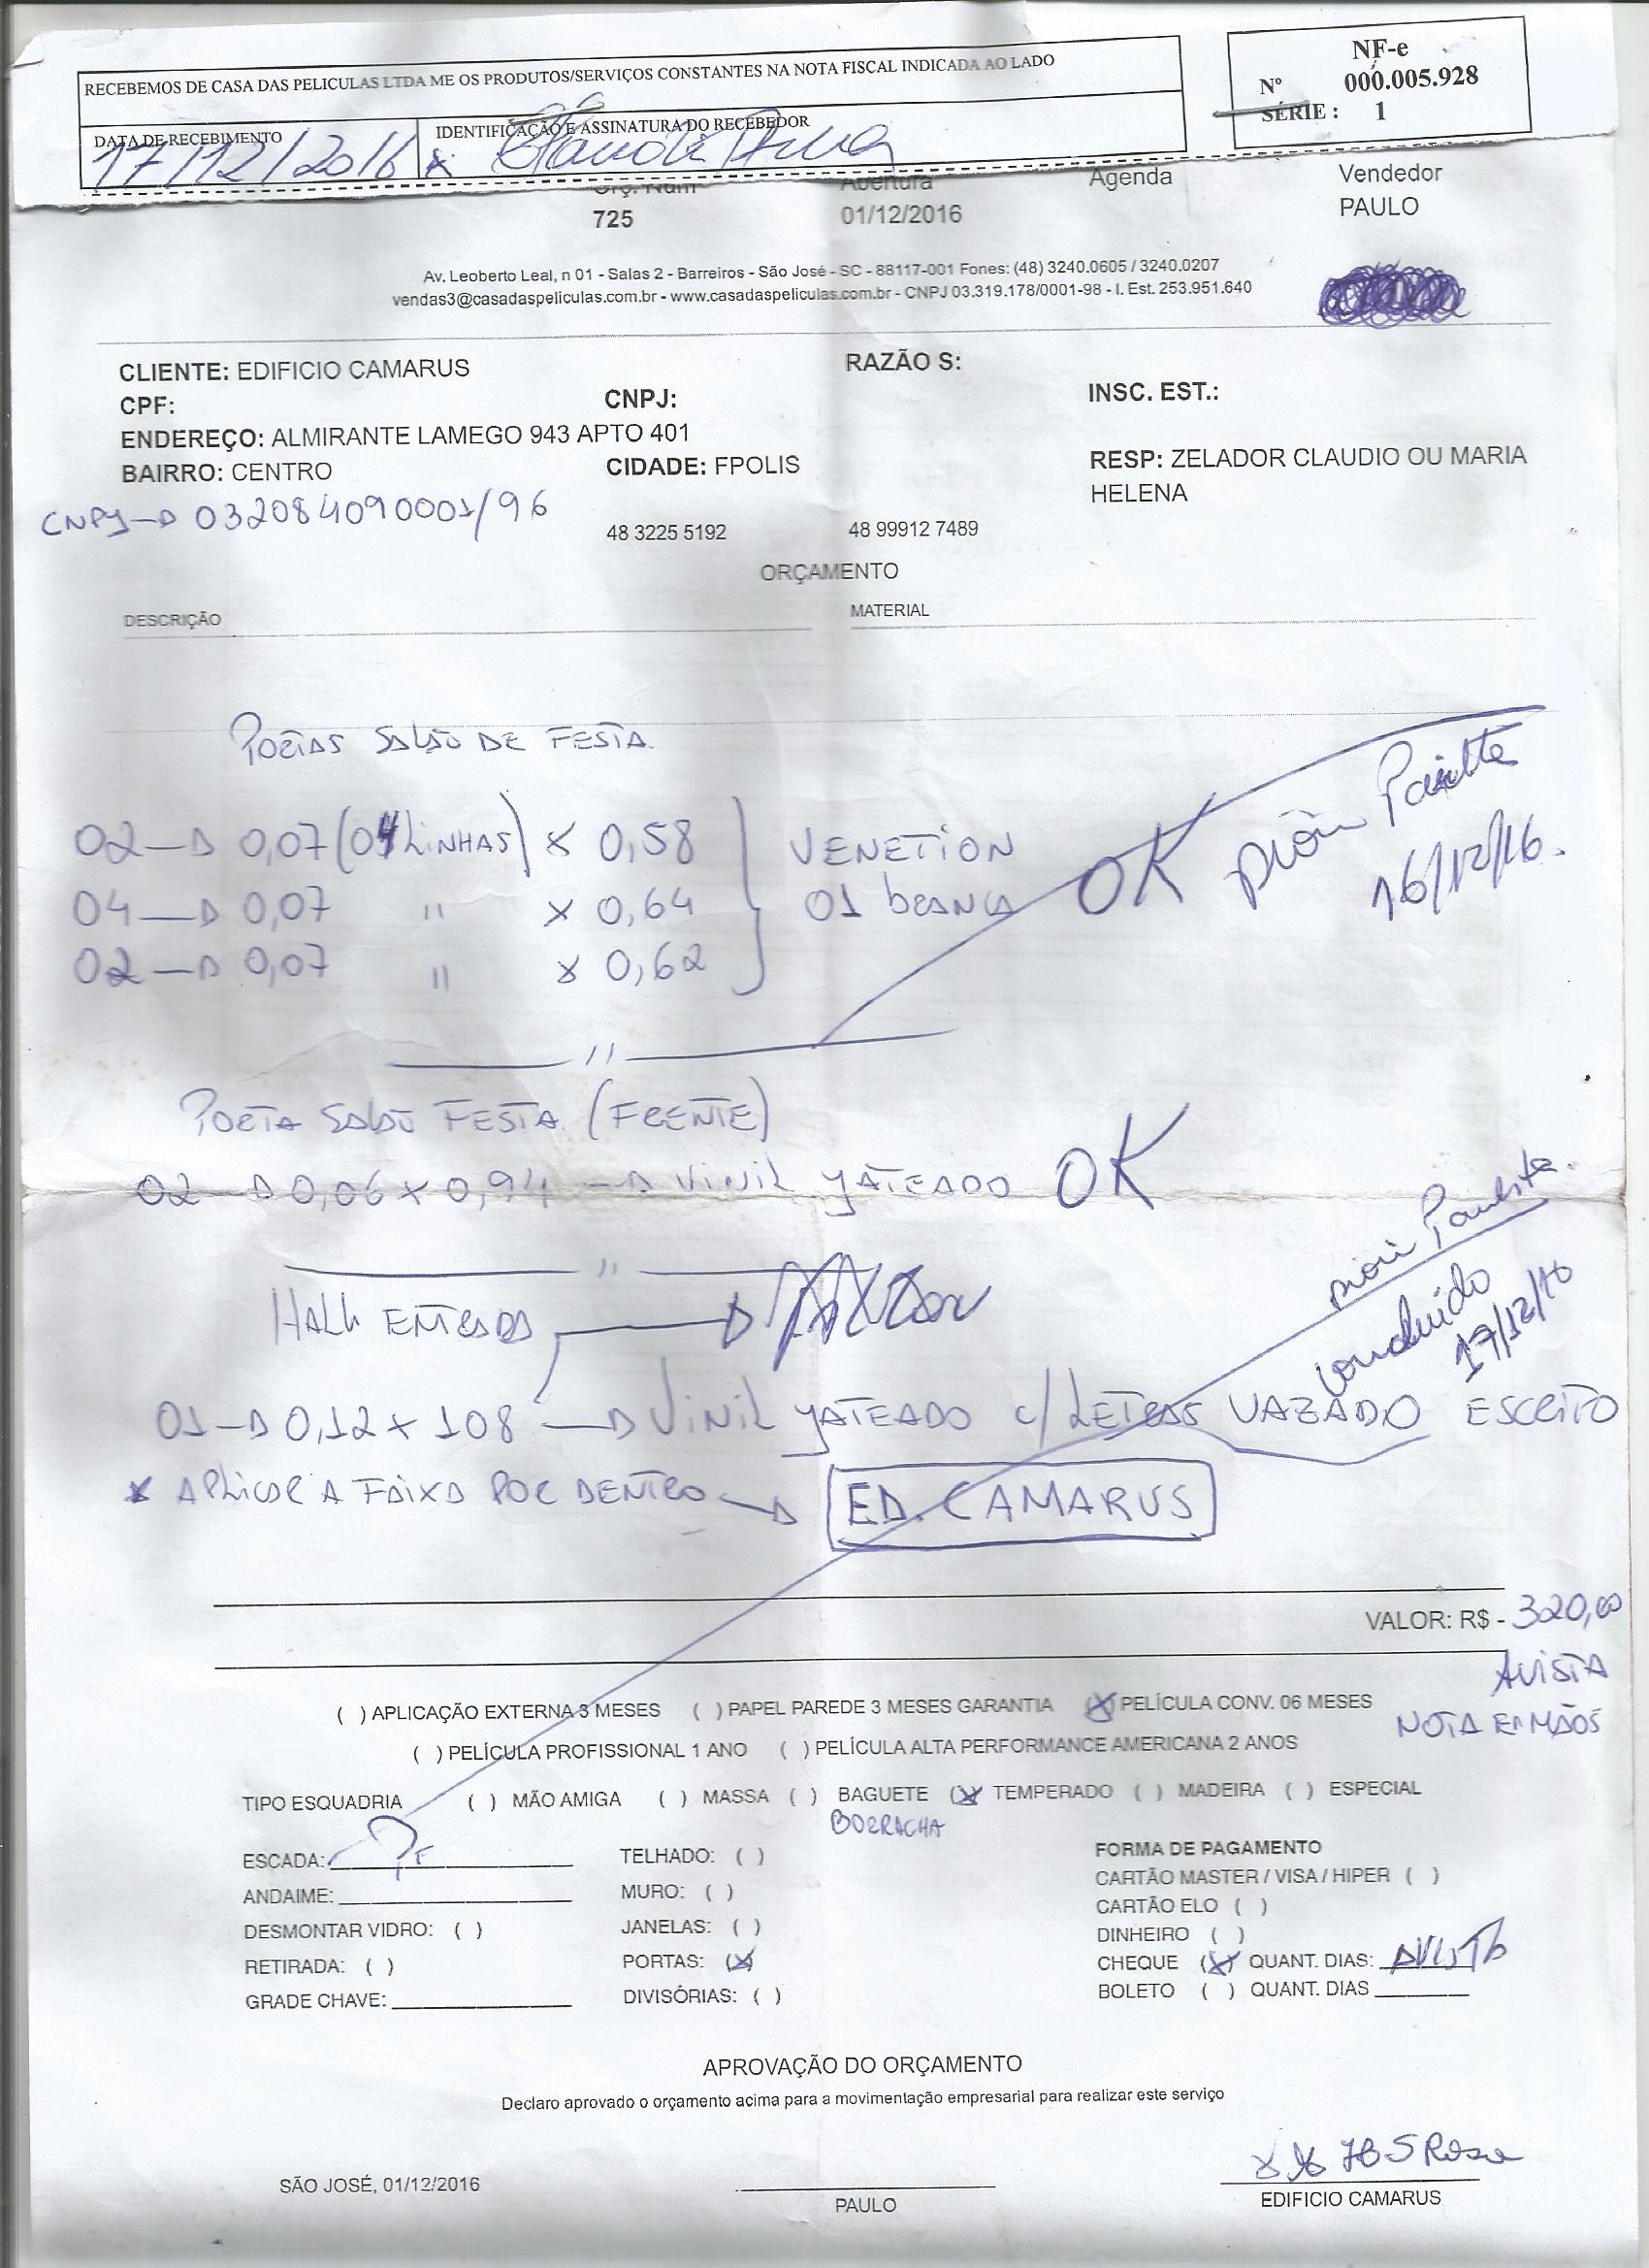 RECEBEMOS DE CASA DAS PELICULAS LTDA ME OS PRODUTOS/SERVIÇOS CONSTANTES NA NOTA FISCAL INDICADA AO LADO
NF-e
Nº 000.005.928
SÉRIE : 1
DATA DE RECEBIMENTO
IDENTIFICAÇÃO E ASSINATURA DO RECEBEDOR
17/12/2016 x
Orç. Num Abertura Agenda Vendedor
725 01/12/2016 PAULO
Av. Leoberto Leal, n 01 - Salas 2 - Barreiros - São José - SC - 88117-001 Fones: (48) 3240.0605 / 3240.0207
vendas3@casadaspeliculas.com.br - www.casadaspeliculas.com.br - CNPJ 03.319.178/0001-98 - I. Est. 253.951.640
CLIENTE: EDIFICIO CAMARUS RAZÃO S:
CPF: CNPJ: INSC. EST.:
ENDEREÇO: ALMIRANTE LAMEGO 943 APTO 401
BAIRRO: CENTRO CIDADE: FPOLIS RESP: ZELADOR CLAUDIO OU MARIA
HELENA
CNPJ 032084090001/96
48 3225 5192 48 99912 7489
ORÇAMENTO
DESCRIÇÃO MATERIAL
PORTAS SALÃO DE FESTA
02 0,07 (04 LINHAS) x 0,58 VENETION
04 0,07 " x 0,64 01 branca OK
16/12/16.
02 0,07 " x 0,62
"
PORTA SALÃO FESTA (FRENTE)
02 0,06 x 0,94 VINIL JATEADO OK
"
HALL ENTRADA
concluido
17/12/16
01 0,12 x 108 VINIL JATEADO c/ LETRAS VAZADO ESCRITO
x APLICAR A FAIXA POR DENTRO ED. CAMARUS
VALOR: R$ - 320,00
AVISTA
NOTA EM MÃOS
( ) APLICAÇÃO EXTERNA 3 MESES ( ) PAPEL PAREDE 3 MESES GARANTIA (X) PELÍCULA CONV. 06 MESES
( ) PELÍCULA PROFISSIONAL 1 ANO ( ) PELÍCULA ALTA PERFORMANCE AMERICANA 2 ANOS
TIPO ESQUADRIA ( ) MÃO AMIGA ( ) MASSA ( ) BAGUETE (X) TEMPERADO ( ) MADEIRA ( ) ESPECIAL
BORRACHA
ESCADA:
ANDAIME:
DESMONTAR VIDRO: ( )
RETIRADA: ( )
GRADE CHAVE:
TELHADO: ( )
MURO: ( )
JANELAS: ( )
PORTAS: (X)
DIVISÓRIAS: ( )
FORMA DE PAGAMENTO
CARTÃO MASTER / VISA / HIPER ( )
CARTÃO ELO ( )
DINHEIRO ( )
CHEQUE (X) QUANT. DIAS: AVISTA
BOLETO ( ) QUANT. DIAS
APROVAÇÃO DO ORÇAMENTO
Declaro aprovado o orçamento acima para a movimentação empresarial para realizar este serviço
SÃO JOSÉ, 01/12/2016
PAULO
EDIFICIO CAMARUS